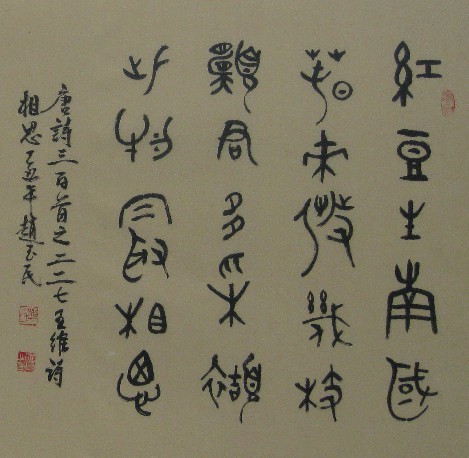 紅豆生南國
春來發幾枝
願君多采擷
此物最相思
唐詩三百首之二二七王維詩
相思丁亥年趙玉民